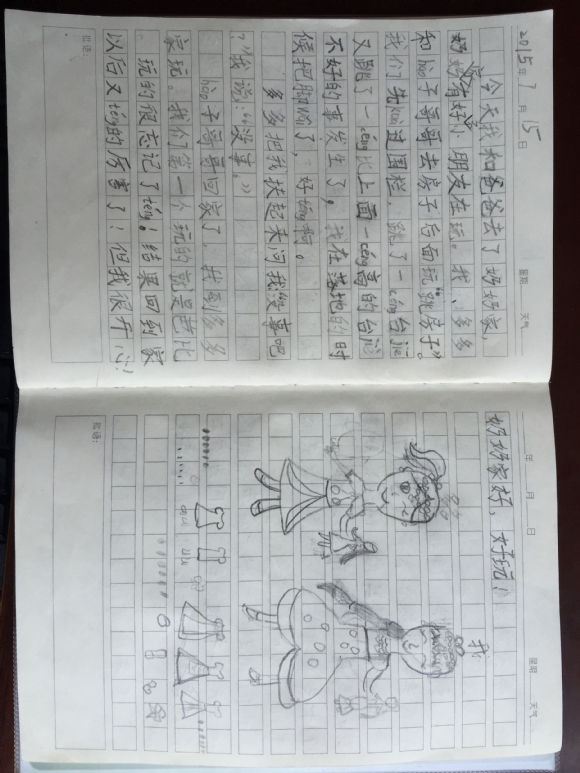 2015年7月15日 星期 天气
今天我和爸爸去了奶奶家,
奶奶家有好小朋友在玩。我、多多
和hao子哥哥去房子后面玩“跳房子”。
我们先kuà过围栏,跳了一céng台jiē
又跳了一céng比上面一céng高的台jiē
不好的事发生了,我在落地的时
候把脚了,好téng啊。
多多把我扶起来问我没事吧
?”我说:“没事。”
hào子哥哥回家了,我到多多
家玩。我们第一个玩的就是芭比
玩的很忘记了téng!结果回到家
以后又téng的厉害了!但我很开心!
批语:
年 月 日 星期 天气
奶奶家好,好玩!
我
批语: